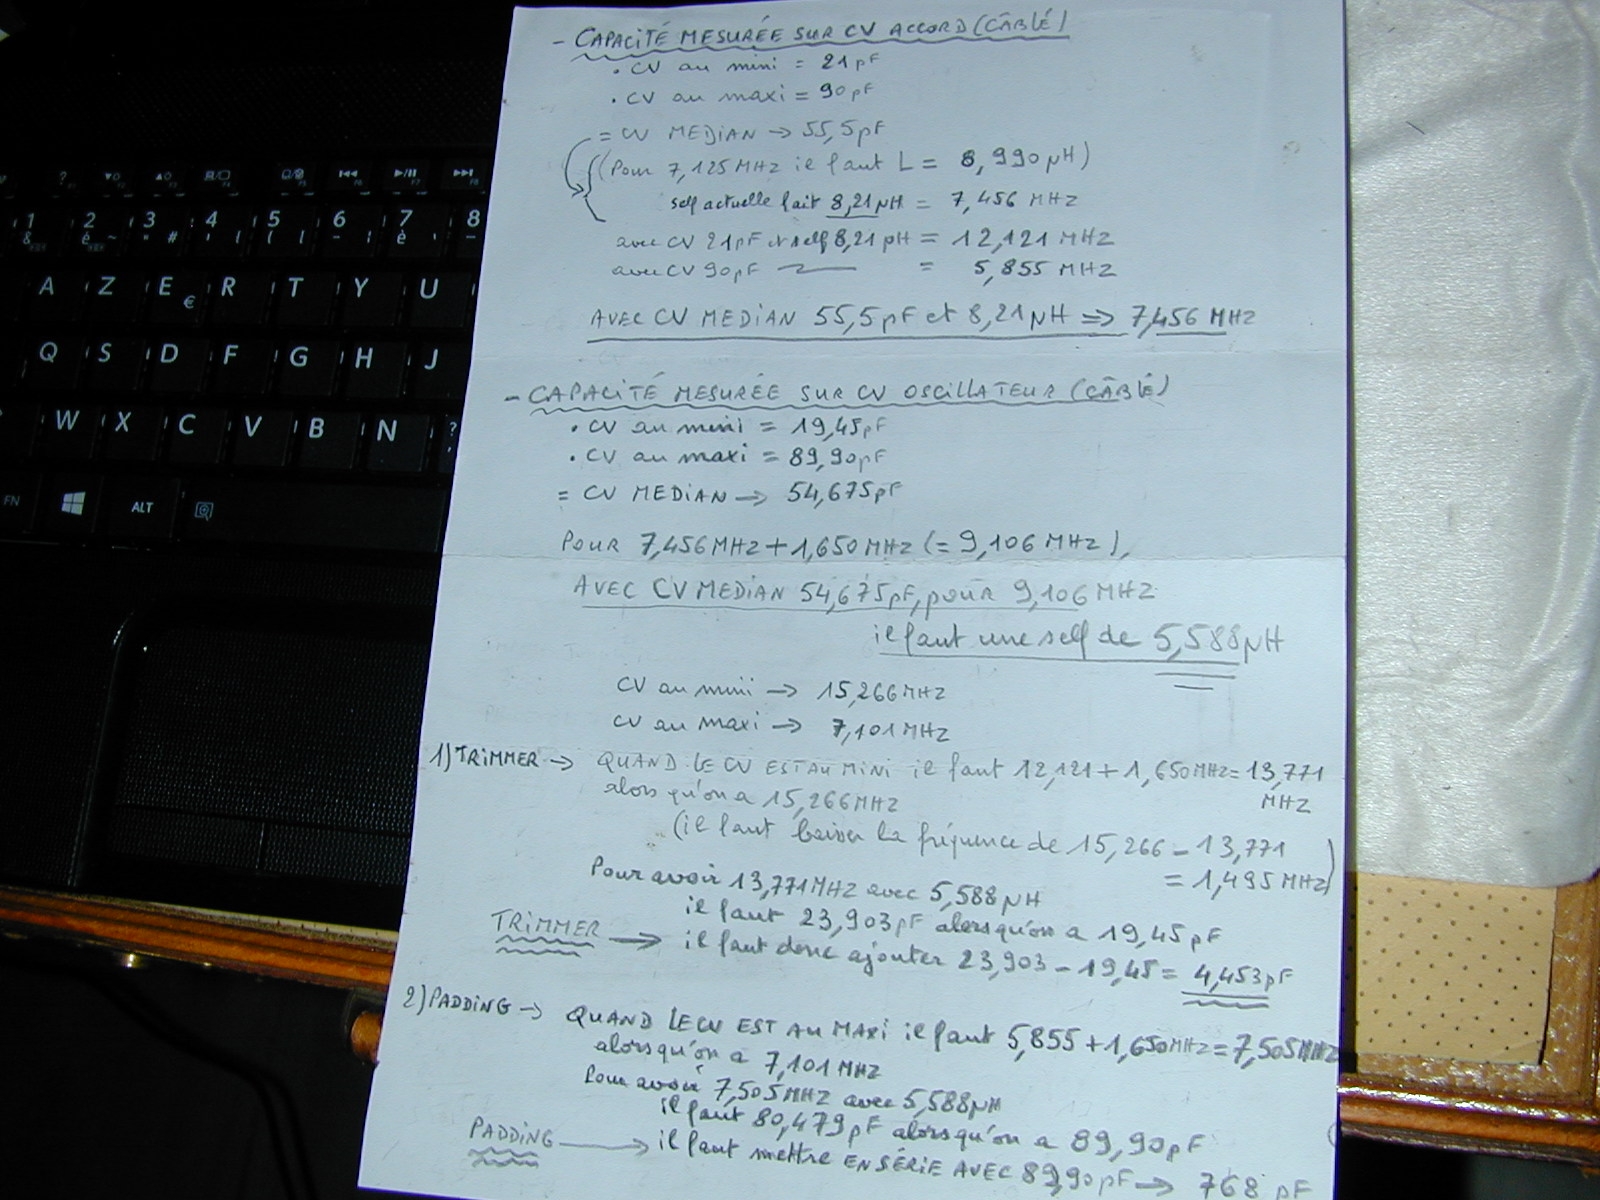 - CAPACITÉ MESURÉE SUR CV ACCORD (CÂBLÉ)
. CV au mini = 21pF
. CV au maxi = 90pF
= CV MEDIAN → 55,5pF
(Pour 7,125 MHz il faut L = 8,990 µH)
self actuelle fait 8,21 µH = 7,456 MHz
avec CV 21pF et self 8,21 µH = 12,121 MHz
avec CV 90pF — = 5,855 MHz
AVEC CV MEDIAN 55,5pF et 8,21µH ⇒ 7,456 MHz
- CAPACITÉ MESURÉE SUR CV OSCILLATEUR (CÂBLÉ)
. CV au mini = 19,45pF
. CV au maxi = 89,90pF
= CV MEDIAN → 54,675pF
POUR 7,456MHz + 1,650MHz (= 9,106 MHz),
AVEC CV MEDIAN 54,675pF, pour 9,106 MHz
il faut une self de 5,588µH
CV au mini → 15,266MHz
CV au maxi → 7,101MHz
1) TRIMMER → QUAND LE CV EST AU MINI il faut 12,121 + 1,650MHz = 13,771 MHz
alors qu'on a 15,266MHz
(il faut baisser la fréquence de 15,266 - 13,771 = 1,495 MHz)
Pour avoir 13,771MHz avec 5,588µH
il faut 23,903pF alors qu'on a 19,45pF
TRIMMER → il faut donc ajouter 23,903 - 19,45 = 4,453pF
2) PADDING → QUAND LE CV EST AU MAXI il faut 5,855 + 1,650MHz = 7,505MHz
alors qu'on a 7,101 MHz
Pour avoir 7,505MHz avec 5,588µH
il faut 80,479pF alors qu'on a 89,90pF
PADDING → il faut mettre EN SÉRIE AVEC 89,90pF → 768 pF
1 2 3 4 5 6 7 8
A Z E € R T Y U
Q S D F G H J
W X C V B N ?
FN ALT